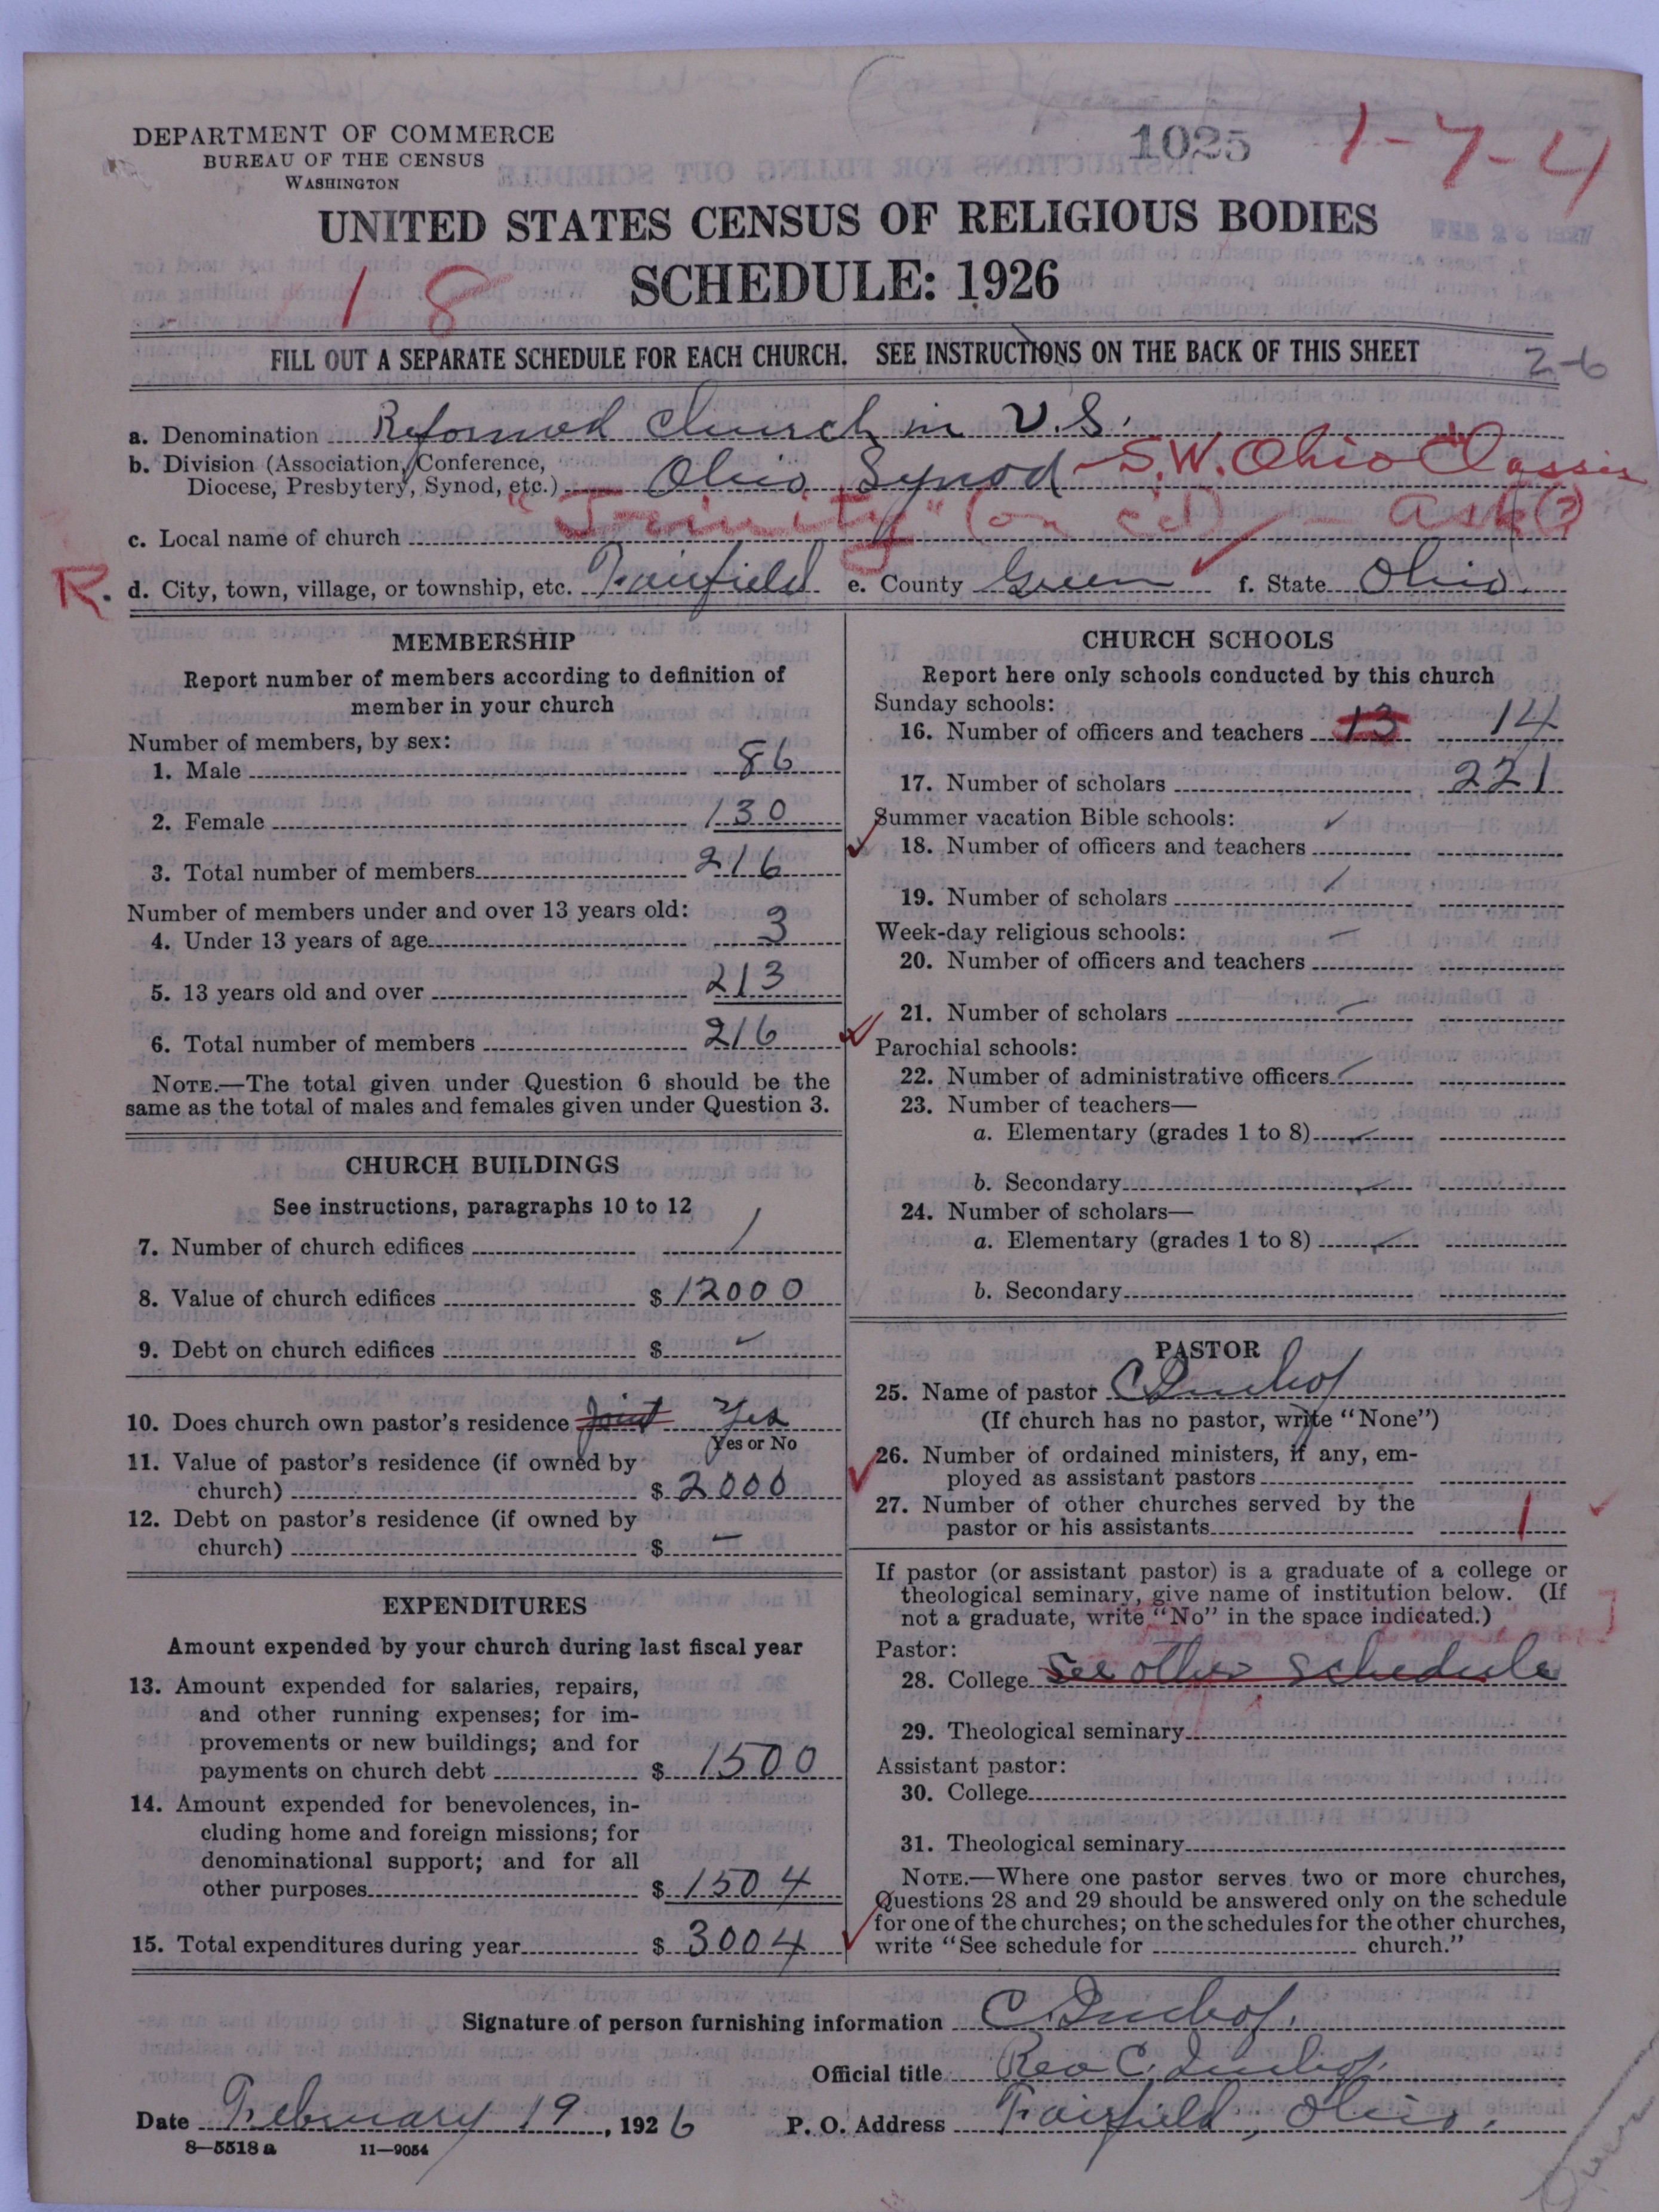 DEPARTMENT OF COMMERCE
BUREAU OF THE CENSUS
WASHINGTON
1025
1-7-4
UNITED STATES CENSUS OF RELIGIOUS BODIES
FEB 28 1927
18
SCHEDULE: 1926
FILL OUT A SEPARATE SCHEDULE FOR EACH CHURCH. SEE INSTRUCTIONS ON THE BACK OF THIS SHEET
2-6
a. Denomination Reformed Church in U.S.
b. Division (Association, Conference, Diocese, Presbytery, Synod, etc.) Ohio Synod - S.W. Ohio Classis
c. Local name of church "Trinity" (on c'd) - ask (?)
R. d. City, town, village, or township, etc. Fairfield e. County Green f. State Ohio.
MEMBERSHIP
Report number of members according to definition of
member in your church
Number of members, by sex:
1. Male 86
2. Female 130
3. Total number of members 216
Number of members under and over 13 years old:
4. Under 13 years of age 3
5. 13 years old and over 213
6. Total number of members 216
NOTE.—The total given under Question 6 should be the
same as the total of males and females given under Question 3.
CHURCH BUILDINGS
See instructions, paragraphs 10 to 12
7. Number of church edifices 1
8. Value of church edifices $ 12000
9. Debt on church edifices $ -
10. Does church own pastor's residence Joint Yes
Yes or No
11. Value of pastor's residence (if owned by
church) $ 2000
12. Debt on pastor's residence (if owned by
church) $ -
EXPENDITURES
Amount expended by your church during last fiscal year
13. Amount expended for salaries, repairs,
and other running expenses; for im-
provements or new buildings; and for
payments on church debt $ 1500
14. Amount expended for benevolences, in-
cluding home and foreign missions; for
denominational support; and for all
other purposes $ 1504
15. Total expenditures during year $ 3004
CHURCH SCHOOLS
Report here only schools conducted by this church
Sunday schools:
16. Number of officers and teachers 13 14
17. Number of scholars 221
Summer vacation Bible schools:
18. Number of officers and teachers
19. Number of scholars
Week-day religious schools:
20. Number of officers and teachers
21. Number of scholars
Parochial schools:
22. Number of administrative officers
23. Number of teachers—
a. Elementary (grades 1 to 8)
b. Secondary
24. Number of scholars—
a. Elementary (grades 1 to 8)
b. Secondary
PASTOR
25. Name of pastor C
(If church has no pastor, write "None")
26. Number of ordained ministers, if any, em-
ployed as assistant pastors
27. Number of other churches served by the
pastor or his assistants 1
If pastor (or assistant pastor) is a graduate of a college or
theological seminary, give name of institution below. (If
not a graduate, write "No" in the space indicated.)
Pastor:
28. College See other schedule
29. Theological seminary
Assistant pastor:
30. College
31. Theological seminary
NOTE.—Where one pastor serves two or more churches,
Questions 28 and 29 should be answered only on the schedule
for one of the churches; on the schedules for the other churches,
write "See schedule for church."
Signature of person furnishing information C.
Official title Rev C.
Date February 19, 1926 P. O. Address Fairfield, Ohio.
8—5518 a 11—9054